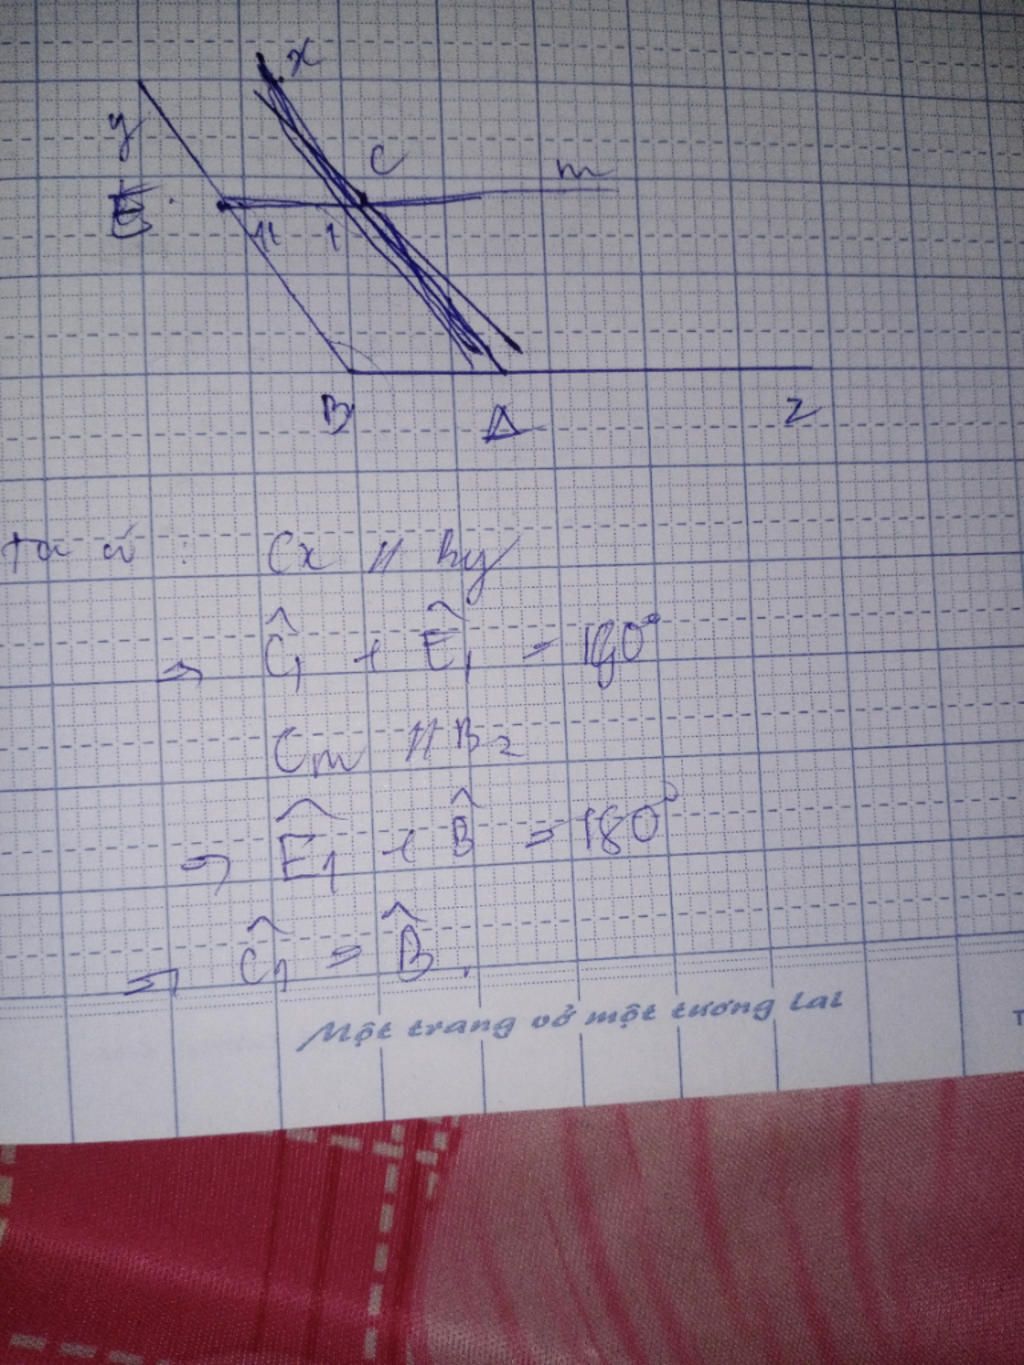 x
y
C
m
E
1
1
B
A
z
Ta có : Cx // By
⇒ Ĉ₁ + Ê₁ = 180°
Cm // Bz
⇒ Ê₁ + B̂ = 180°
⇒ Ĉ₁ = B̂.
Một trang vở một tương lai
T